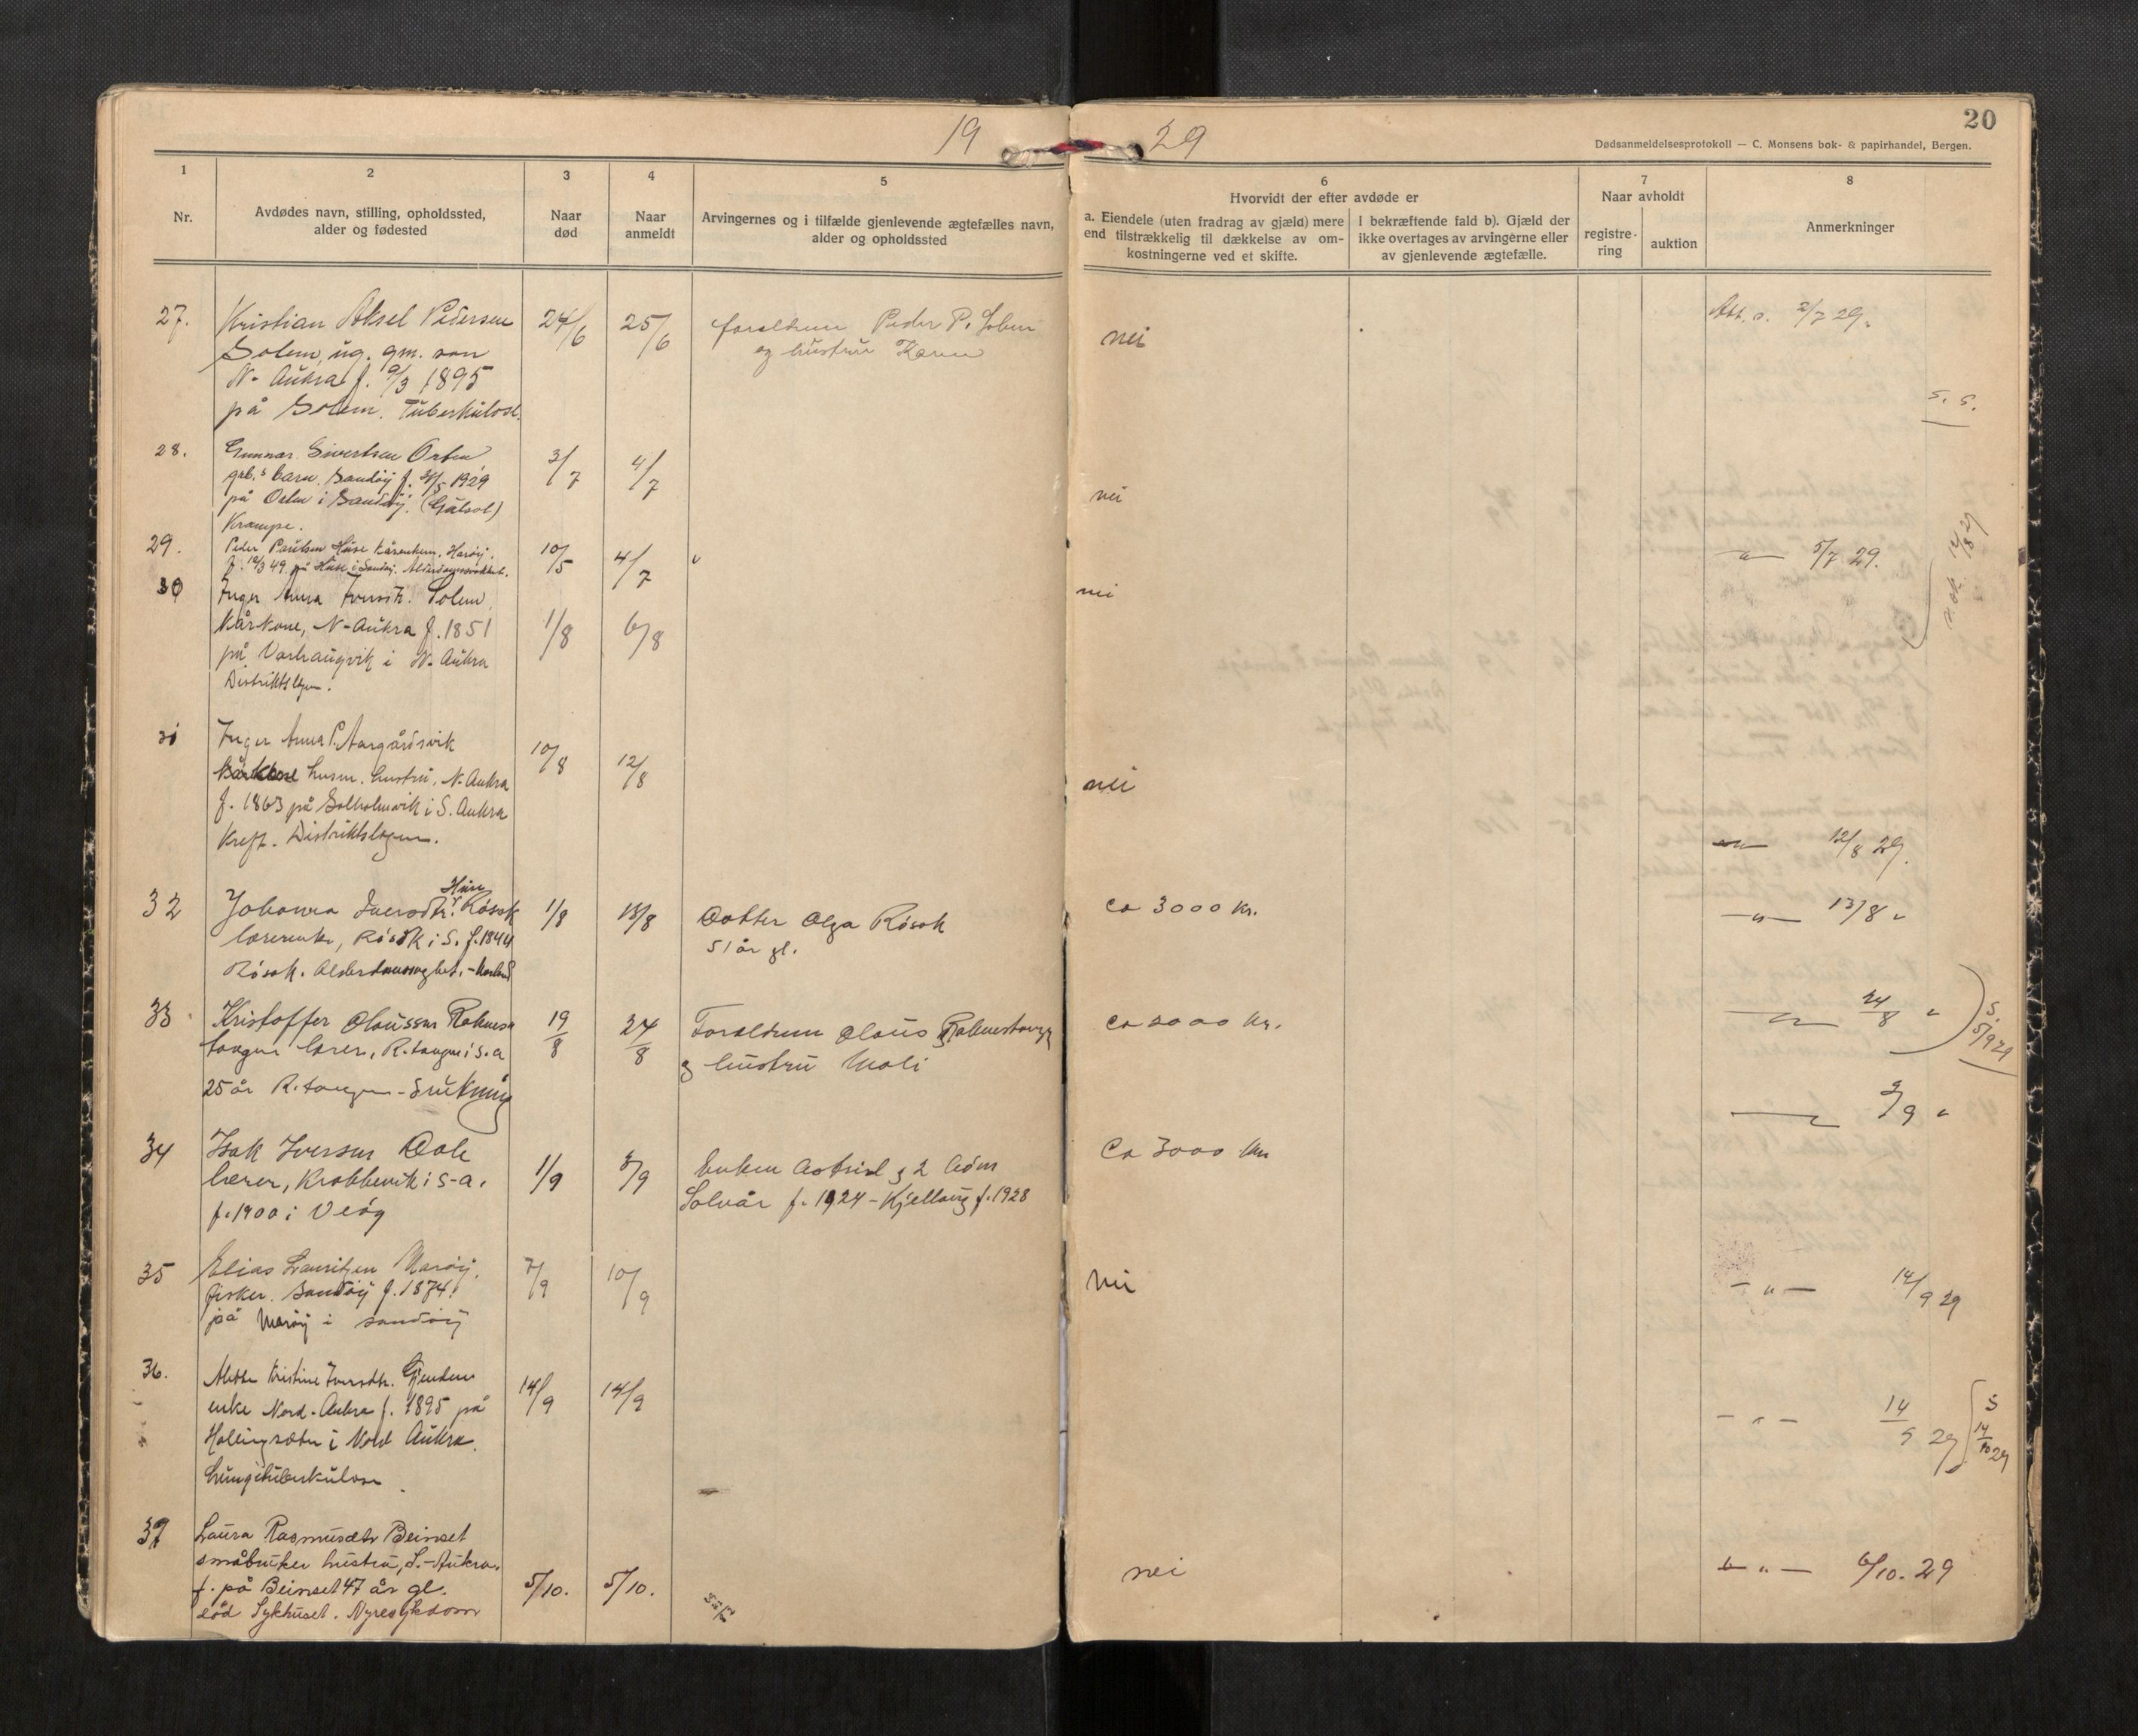 19
29
20
Dødsanmeldelsesprotokoll — C. Monsens bok- & papirhandel, Bergen.
1
Nr.
2
Avdødes navn, stilling, opholdssted,
alder og fødested
3
Naar
død
4
Naar
anmeldt
5
Arvingernes og i tilfælde gjenlevende ægtefælles navn,
alder og opholdssted
6
Hvorvidt der efter avdøde er
a. Eiendele (uten fradrag av gjæld) mere
end tilstrækkelig til dækkelse av om-
kostningerne ved et skifte.
I bekræftende fald b). Gjæld der
ikke overtages av arvingerne eller
av gjenlevende ægtefælle.
7
Naar avholdt
registre-
ring
auktion
8
Anmerkninger
27.
Kristian Aksel Pedersen
Solem, ug. gm. søn
N- Aukra f. 9/3 1895
på Solem. Tuberkulose.
24/6
25/6
foreldrene Peder P. Solem
og hustru
nei
2/7 29.
s. s.
28.
Gunnar Sivertsen Orten
barn. Sandøy f. 1929
på Orten i Sandøy. (Gulsot)
Krampe.
3/7
4/7
nei
29.
Peder Paulsen Huse Harøy.
f. 49. på Huse i Sandøy.
10/5
4/7
"
— " — 5/7 29.
30
Inger Anna Iversdtr. Solem,
Kårkone, N-Aukra f. 1851
på Varhaugvik i N- Aukra
Distriktslegen.
1/8
6/8
nei
31
Inger Anna P. Aargårdsvik
husm. hustru, N. Aukra
f. 1863 på Solholmvik i S. Aukra
Kreft. Distriktslegen.
10/8
12/8
nei
— " — 12/8 29.
32
Huse
Johanna Iversdtr. Røsok
lærerenke, Røsok i S. f. 1844
Røsok. Alderdomssvaghet.
1/8
13/8
Datter Olga Røsok
51 år gl.
ca 3000 kr.
— " — 13/8 "
33
Kristoffer Olaussen Raknes-
tangen lærer, R.tangen i S. a
25 år R. tangen - Drukning
19/8
24/8
Foreldrene Olaus Raknestangen
og hustru Mali
ca 2000 kr.
24/8 "
S.
5/9 29
9/9 "
34
Isak Iversen Dale
lærer, Krabbevik i S-a.
f. 1900 i Veøy
1/9
Enken Astrid og 2 børn
Solvår f. 1924 - Kjellaug f. 1928
Ca 3000 kr
35
Elias Lauritzen Harøy.
fisker. Sandøy f. 1874.
på Harøy i Sandøy
7/9
10/9
nei
— " — 14/9 29
36.
Kristine Iversdtr. Gjendem
enke Nord-Aukra f. 1895 på
Hollingsæter i Nord Aukra.
Lungetuberkulose
14/9
14/9
— " — 14/9 29
S
14/10 29
37
Laura Rasmusdtr Beinset
småbruker hustru, S.-Aukra.
f. på Beinset 47 år gl.
død Sykhuset. Nyresykdom
5/10.
5/10.
nei
— " — 6/10. 29